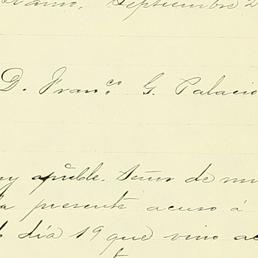 Septiembre 2
D. Fran.co G. Palacio
ay apble. Señor de mi
la presente acuso á
l día 19 que vino ac